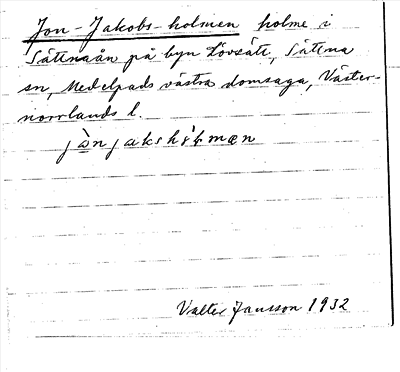 Jon-Jakobs-holmen holme i
Sättnaån på byn Lövsätt, Sättna
sn, Medelpads västra domsaga, Väster-
norrlands l.
Valter Jansson 1932